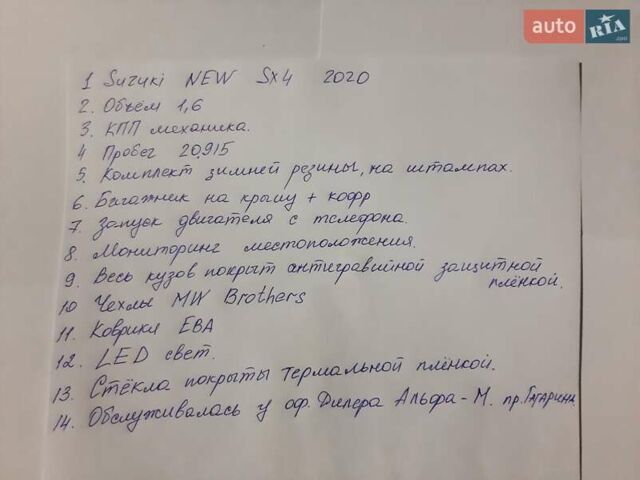 auto RIA.com
1 Suzuki NEW Sx4 2020
2. Объём 1,6
3. КПП механика.
4 Пробег 20915
5. Комплект зимней резины, на штампах.
6. Багажник на крышу + кофр
7. Запуск двигателя с телефона.
8. Мониторинг местоположения.
9. Весь кузов покрыт антигравийной защитной
плёнкой.
10 Чехлы MW Brothers
11. Коврики ЕВА
12. LED свет.
13. Стёкла покрыты термальной плёнкой.
14. Обслуживалась у оф. Дилера Альфа-М. пр. Гагарина